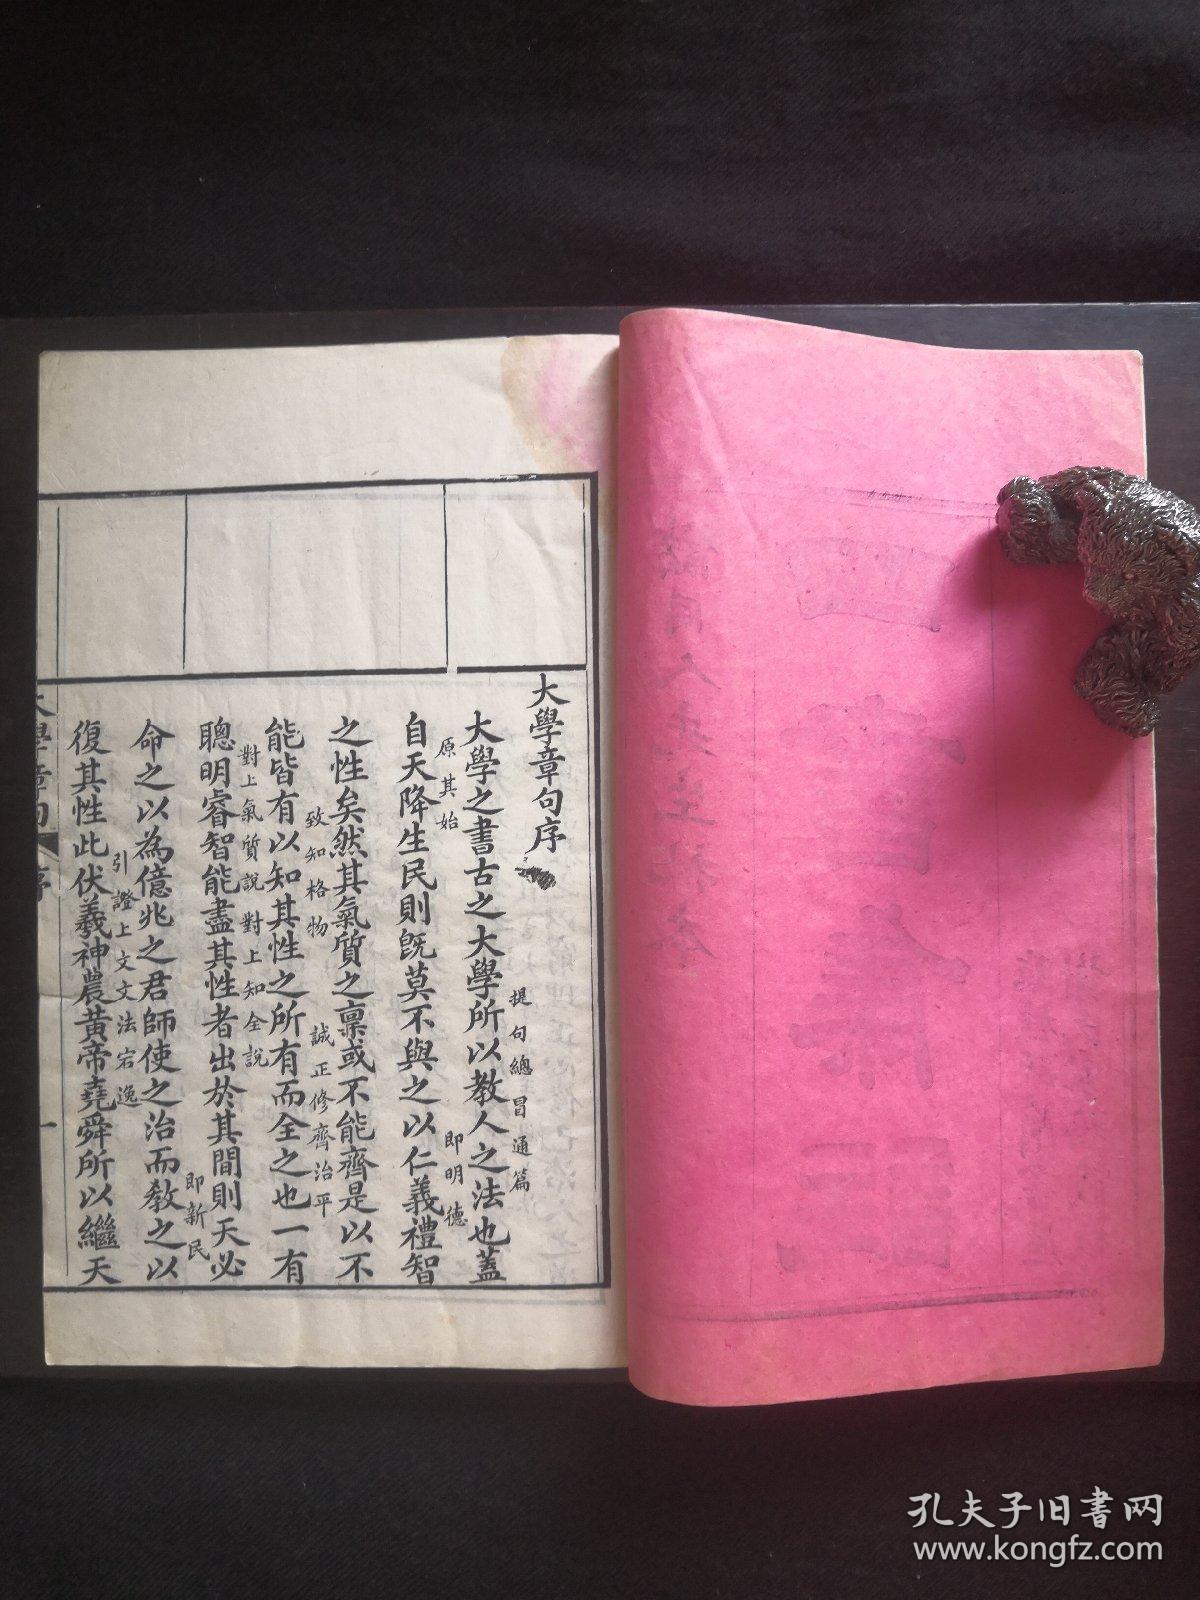 大學章句序
大學之書古之大學所以教人之法也蓋
提句總冒通篇
自天降生民則既莫不與之以仁義禮智
原其始
即明德
之性矣然其氣質之稟或不能齊是以不
能皆有以知其性之所有而全之也一有
致知格物
誠正修齊治平
聰明睿智能盡其性者出於其間則天必
對上氣質說對上知全說
命之以為億兆之君師使之治而教之以
即新民
復其性此伏羲神農黃帝堯舜所以繼天
引證上文文法宕逸
大學章句
序
一
孔夫子旧书网
www.kongfz.com